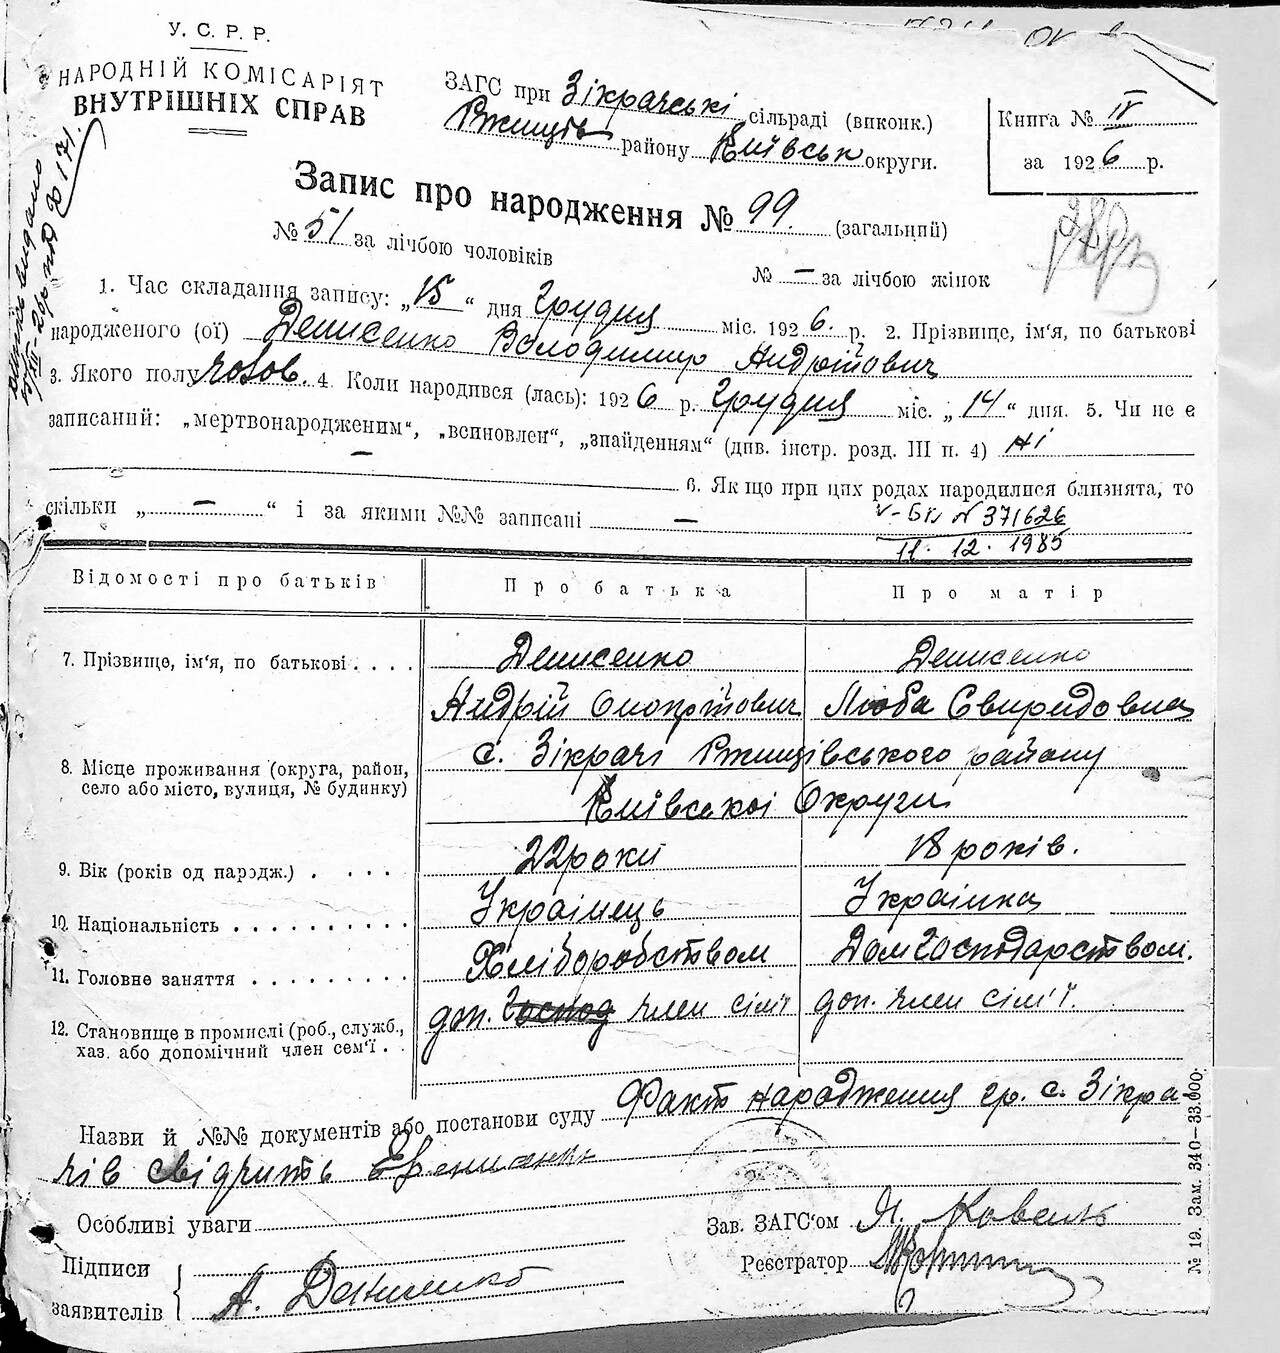 У. С. Р. Р.
НАРОДНІЙ КОМІСАРІЯТ
ВНУТРІШНІХ СПРАВ
ЗАГС при Зікрачські сільраді (виконк.)
Ржищів району Київськ округи.
Книга № IV
за 1926 р.
Запис про народження № 99. (загальний)
№ 51 за лічбою чоловіків
№ – за лічбою жінок
1. Час складання запису: „15“ дня Грудня міс. 1926. р. 2. Прізвище, ім'я, по батькові
народженого (ої) Денисенко Володимир Андрійович
3. Якого полу чолов. 4. Коли народився (лась): 1926 р. Грудня міс. „14“ дня. 5. Чи не є
записаний: „мертвонародженим“, „всиновлен“, „знайденням“ (див. інстр. розд. III п. 4) Ні
–
6. Якщо при цих родах народилися близнята, то
скільки „ – “ і за якими №№ записані –
V-БК N 371626
11. 12. 1985
Відомості про батьків
Про батька
Про матір
7. Прізвище, ім'я, по батькові . . . .
Денисенко
Денисенко
Андрій Онопрійович
Люба Свиридовна
8. Місце проживання (округа, район,
село або місто, вулиця, № будинку)
с. Зікрачі Ржищівського району
Київської Округи
9. Вік (років од народж.) . . . . .
22 роки
18 років.
10. Національність . . . . . . . . . .
Українець
Українка
11. Головне заняття . . . . . . . . .
Хліборобством
Дом Господарством.
12. Становище в промислі (роб., служб.,
хаз. або допомічний член сем'ї . .
доп. член сім'ї
доп. член сім'ї.
Назви й №№ документів або постанови суду Факт народження гр. с. Зікра-
чів свідчить
Особливі уваги
Зав. ЗАГС'ом
Підписи
заявителів
Реєстратор
А. Денисенко
№ 19. Зам. 340—33.000.